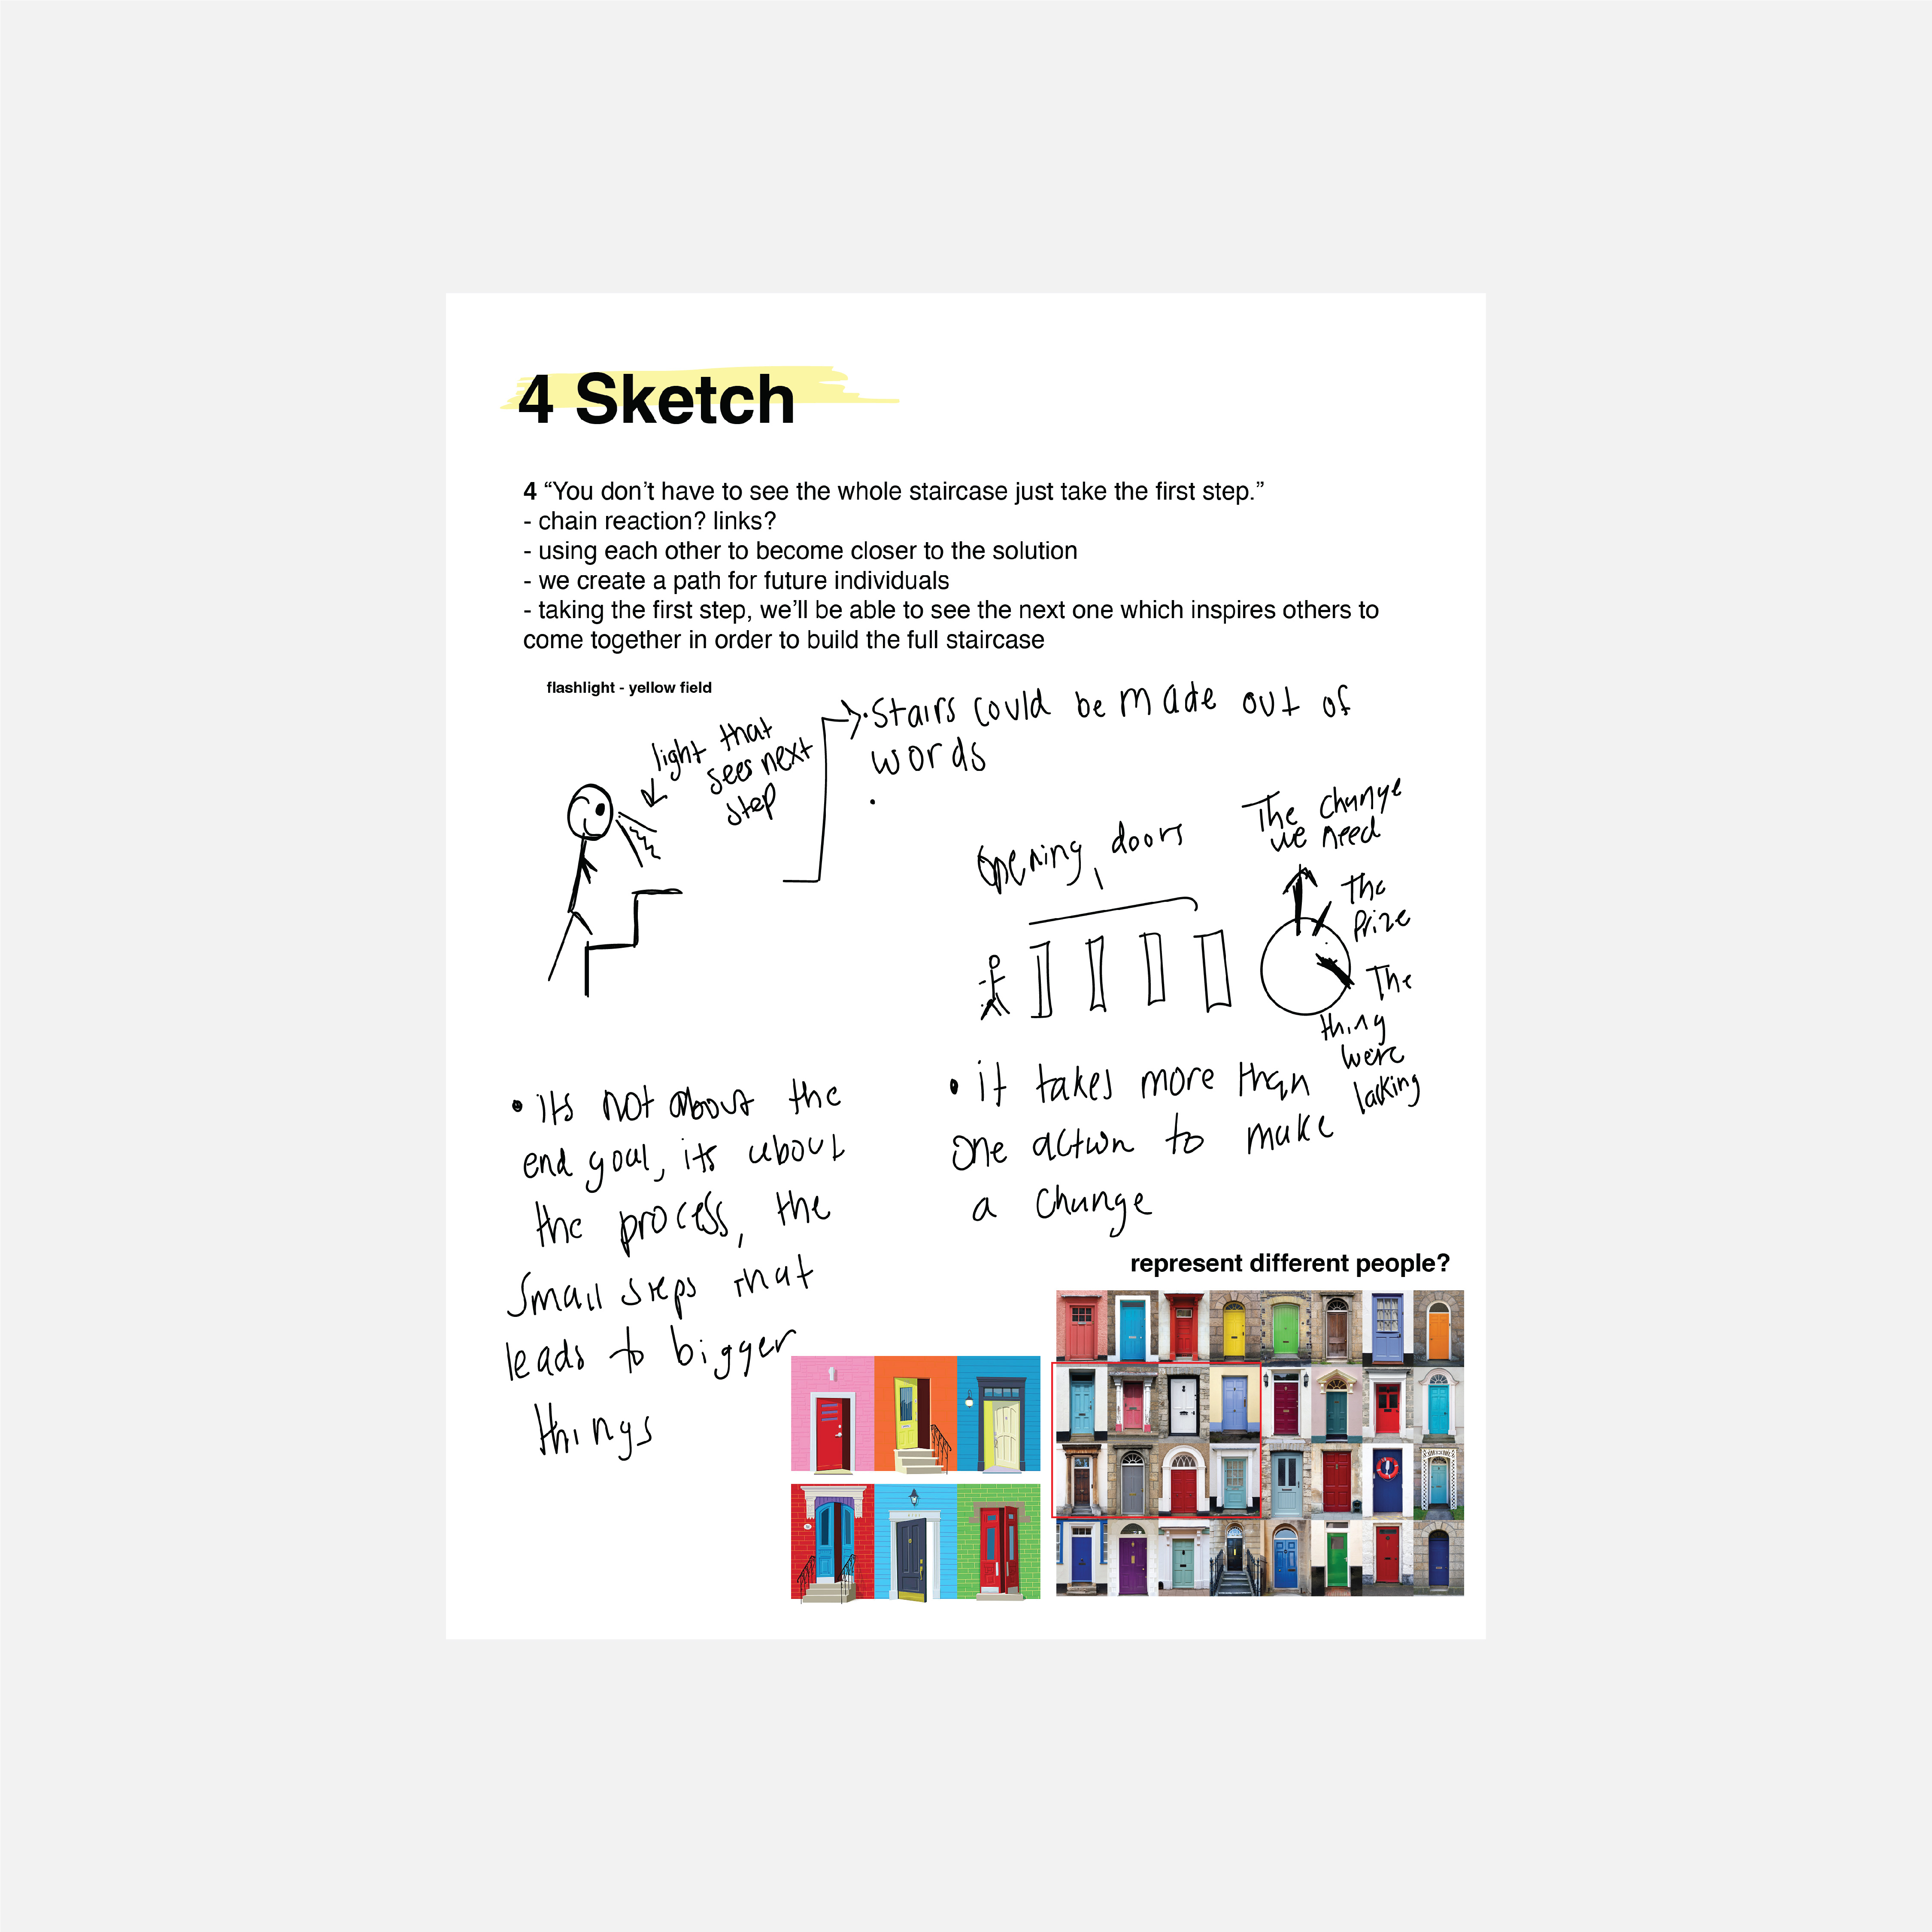 4 Sketch
4 “You don’t have to see the whole staircase just take the first step.”
- chain reaction? links?
- using each other to become closer to the solution
- we create a path for future individuals
- taking the first step, we’ll be able to see the next one which inspires others to
come together in order to build the full staircase
flashlight - yellow field
light that
sees next
step
•Stairs could be made out of
words
•
opening doors
The change
we need
the
prize
The
thing
were
lacking
• its not about the
end goal, its about
the process, the
small steps that
leads to bigger
things
• it takes more than
one action to make
a change
represent different people?